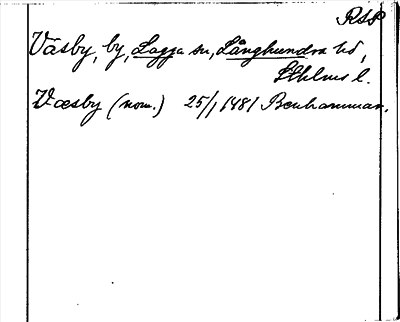 RSP
Väsby, by, Lagga sn, Långhundra hd,
Sthlms l.
Væsby (nom.) 25/1 1481 Benhammar.